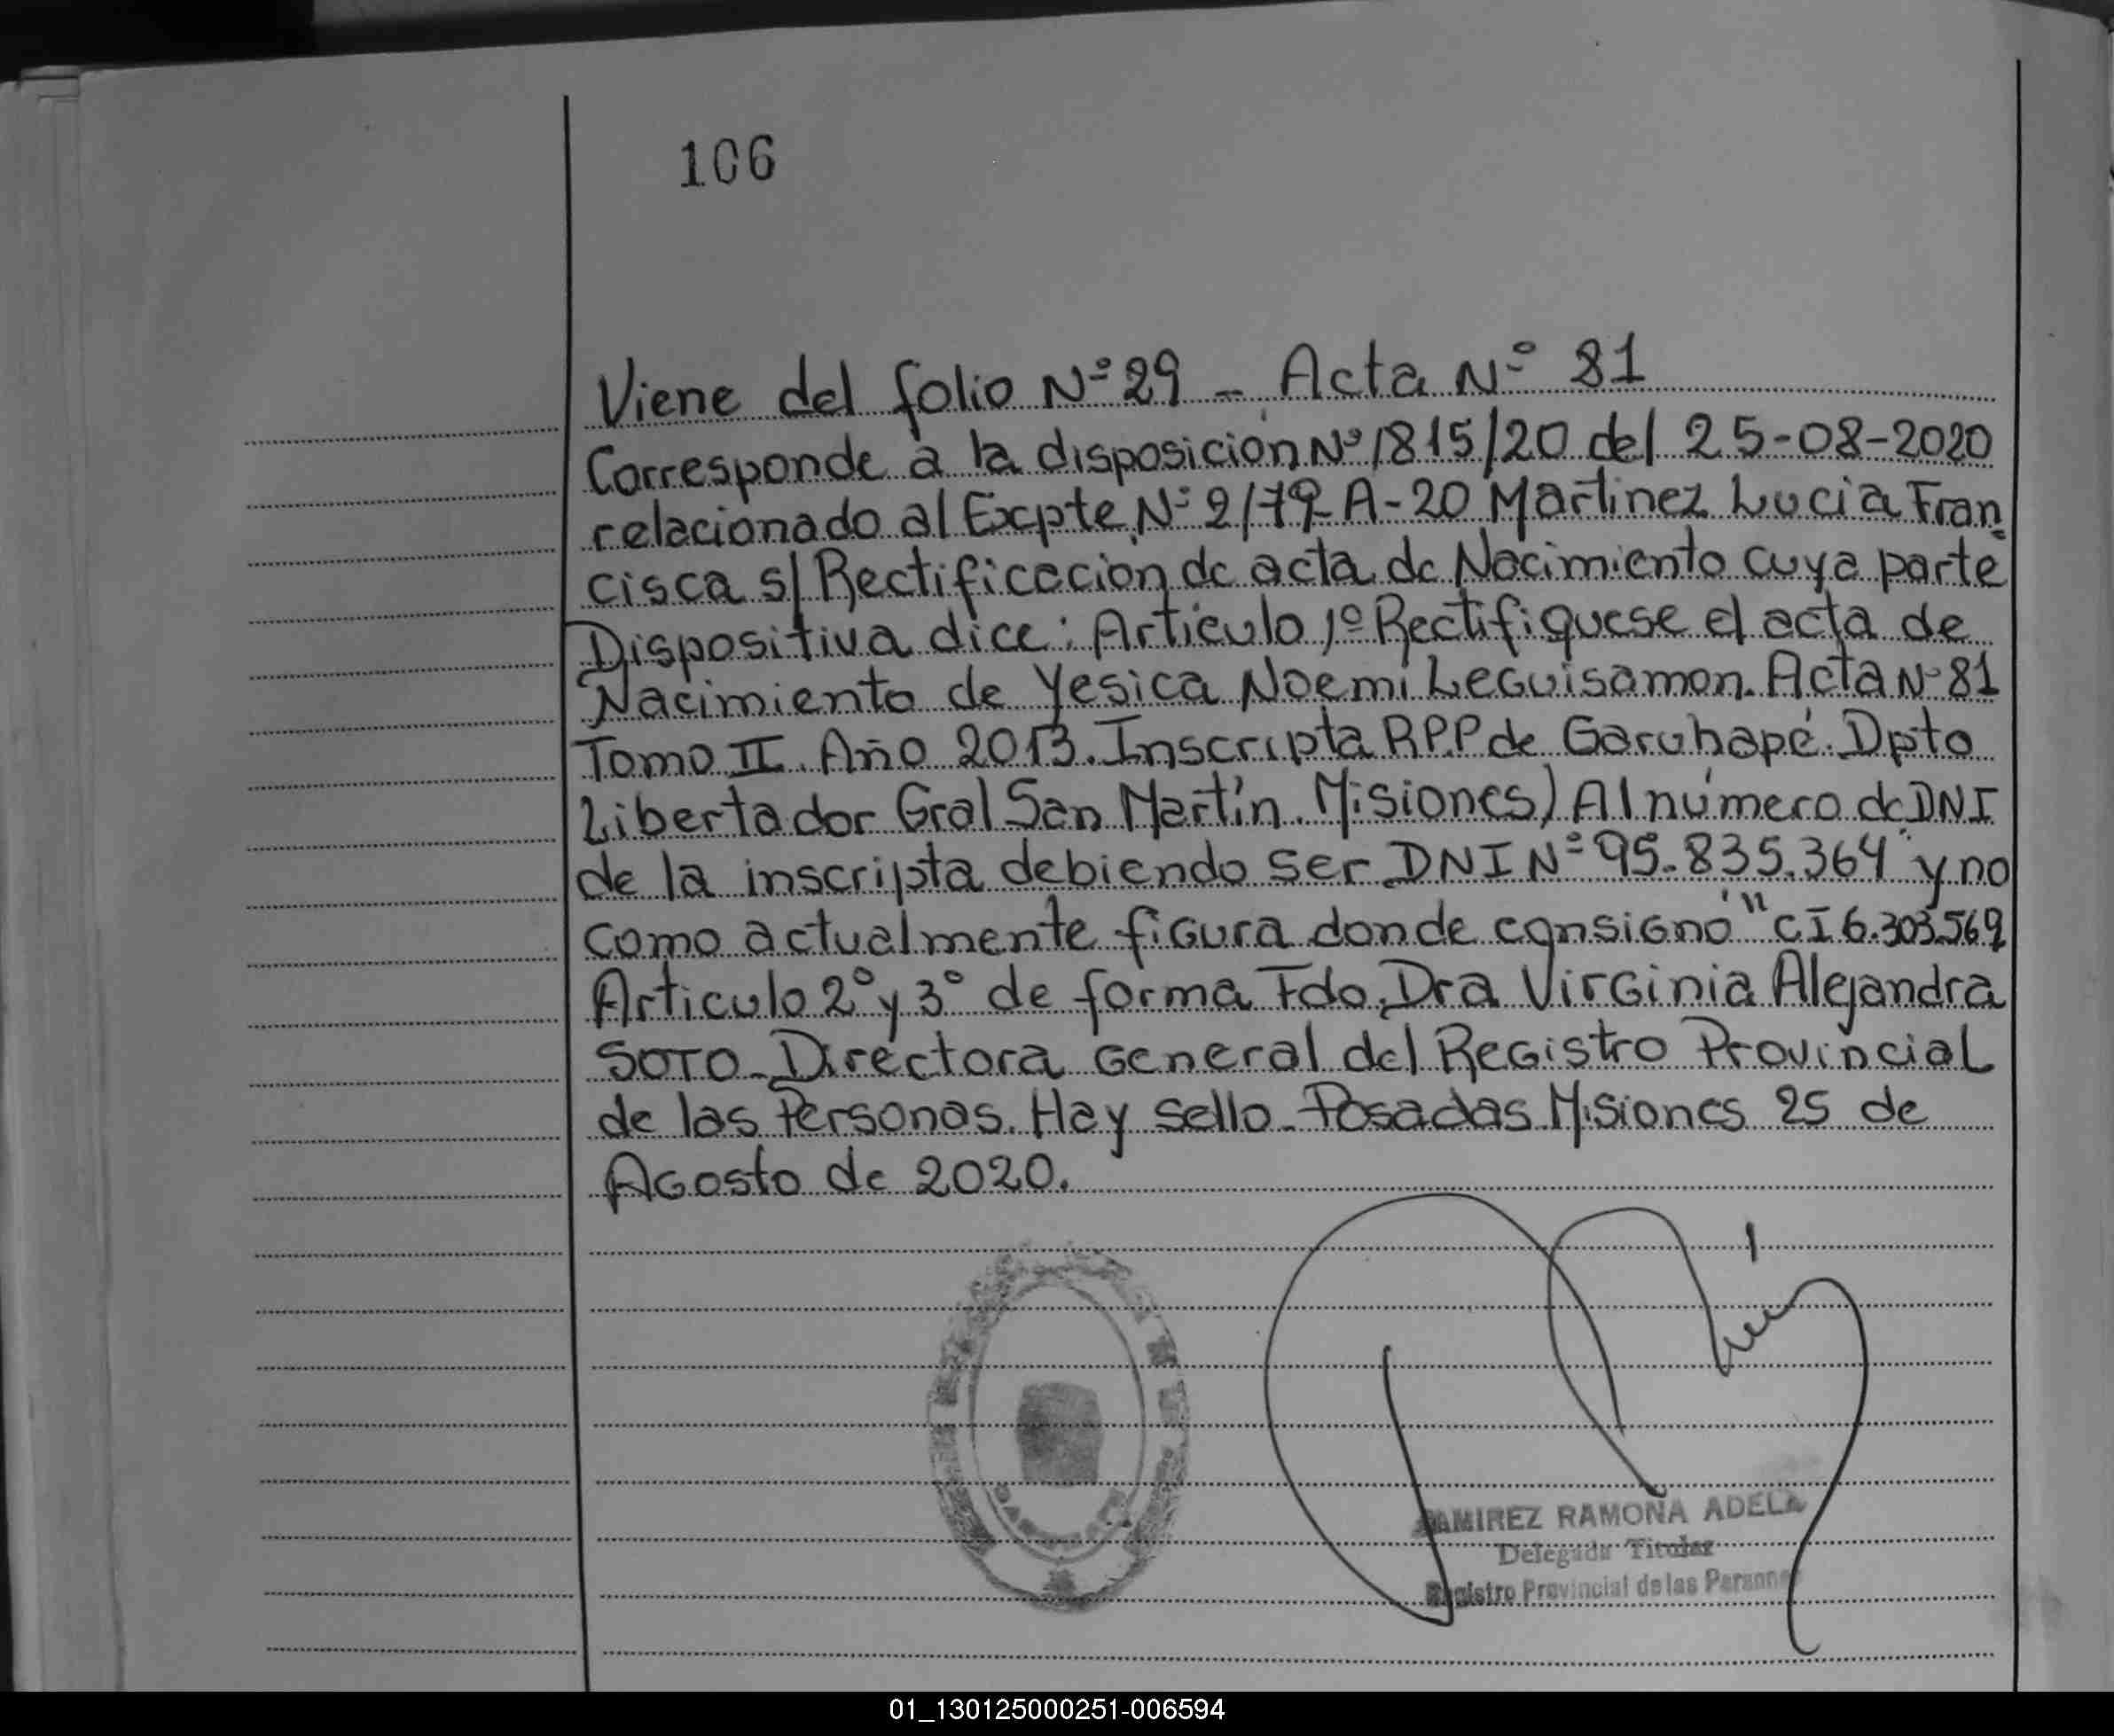 106
Viene del folio Nº 29 - Acta Nº 81
Corresponde a la disposición Nº 1815/20 del 25-08-2020
relacionado al Excpte Nº 2179-A-20 Martinez Lucia Fran
cisca s/ Rectificación de acta de Nacimiento cuya parte
Dispositiva dice: Artículo 1º Rectifiquese el acta de
Nacimiento de Yesica Noemi Leguisamon. Acta Nº 81
Tomo II. Año 2013. Inscripta R.P.P de Garuhapé. Dpto
Libertador Gral San Martín. Misiones) Al número de DNI
de la inscripta debiendo ser DNI Nº 95.835.364 y no
como actualmente figura donde consignó "CI 6.303.569
Articulo 2º y 3º de forma Fdo. Dra Virginia Alejandra
SOTO - Directora General del Registro Provincial
de las Personas. Hay sello - Posadas Misiones 25 de
Agosto de 2020.
RAMIREZ RAMONA ADELA
Delegada Titular
Registro Provincial de las Personas
01_130125000251-006594